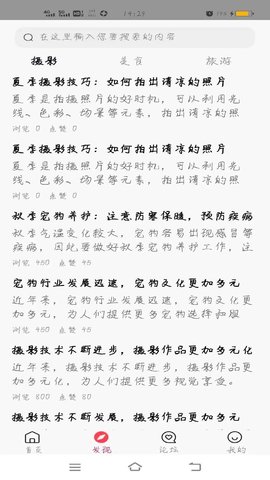 14:29
在这里输入你想搜索的内容
摄影 美食 旅游
夏季摄影技巧：如何拍出清凉的照片
夏季是拍摄照片的好时机，可以利用光
线、色彩、场景等元素，拍出清凉的照
浏览 0 点赞 0
夏季摄影技巧：如何拍出清凉的照片
夏季是拍摄照片的好时机，可以利用光
线、色彩、场景等元素，拍出清凉的照
浏览 0 点赞 0
秋季宠物养护：注意防寒保暖，预防疾病
秋季气温变化较大，宠物容易出现感冒等
疾病，因此要做好秋季宠物养护工作，注
浏览 450 点赞 45
宠物行业发展迅速，宠物文化更加多元
近年来，宠物行业发展迅速，宠物文化更
加多元，为人们提供更多宠物选择和服
浏览 450 点赞 45
摄影技术不断进步，摄影作品更加多元化
近年来，摄影技术不断进步，摄影作品更
加多元化，为人们提供更多视觉享受。
浏览 800 点赞 80
摄影技术不断发展，摄影作品更加多元
首页 发现 论坛 我的